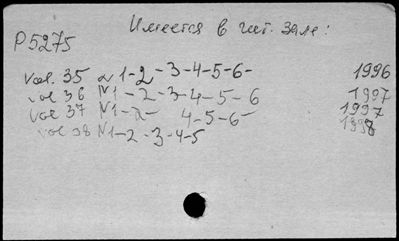 Имеется в чит. зале:
P5275
vol. 35 N 1-2-3-4-5-6- 1996
vol 36 N1-2-3-4-5-6 1997
vol 37 N1-2- 4-5-6- 1997
vol 38 N1-2-3-4-5 1998